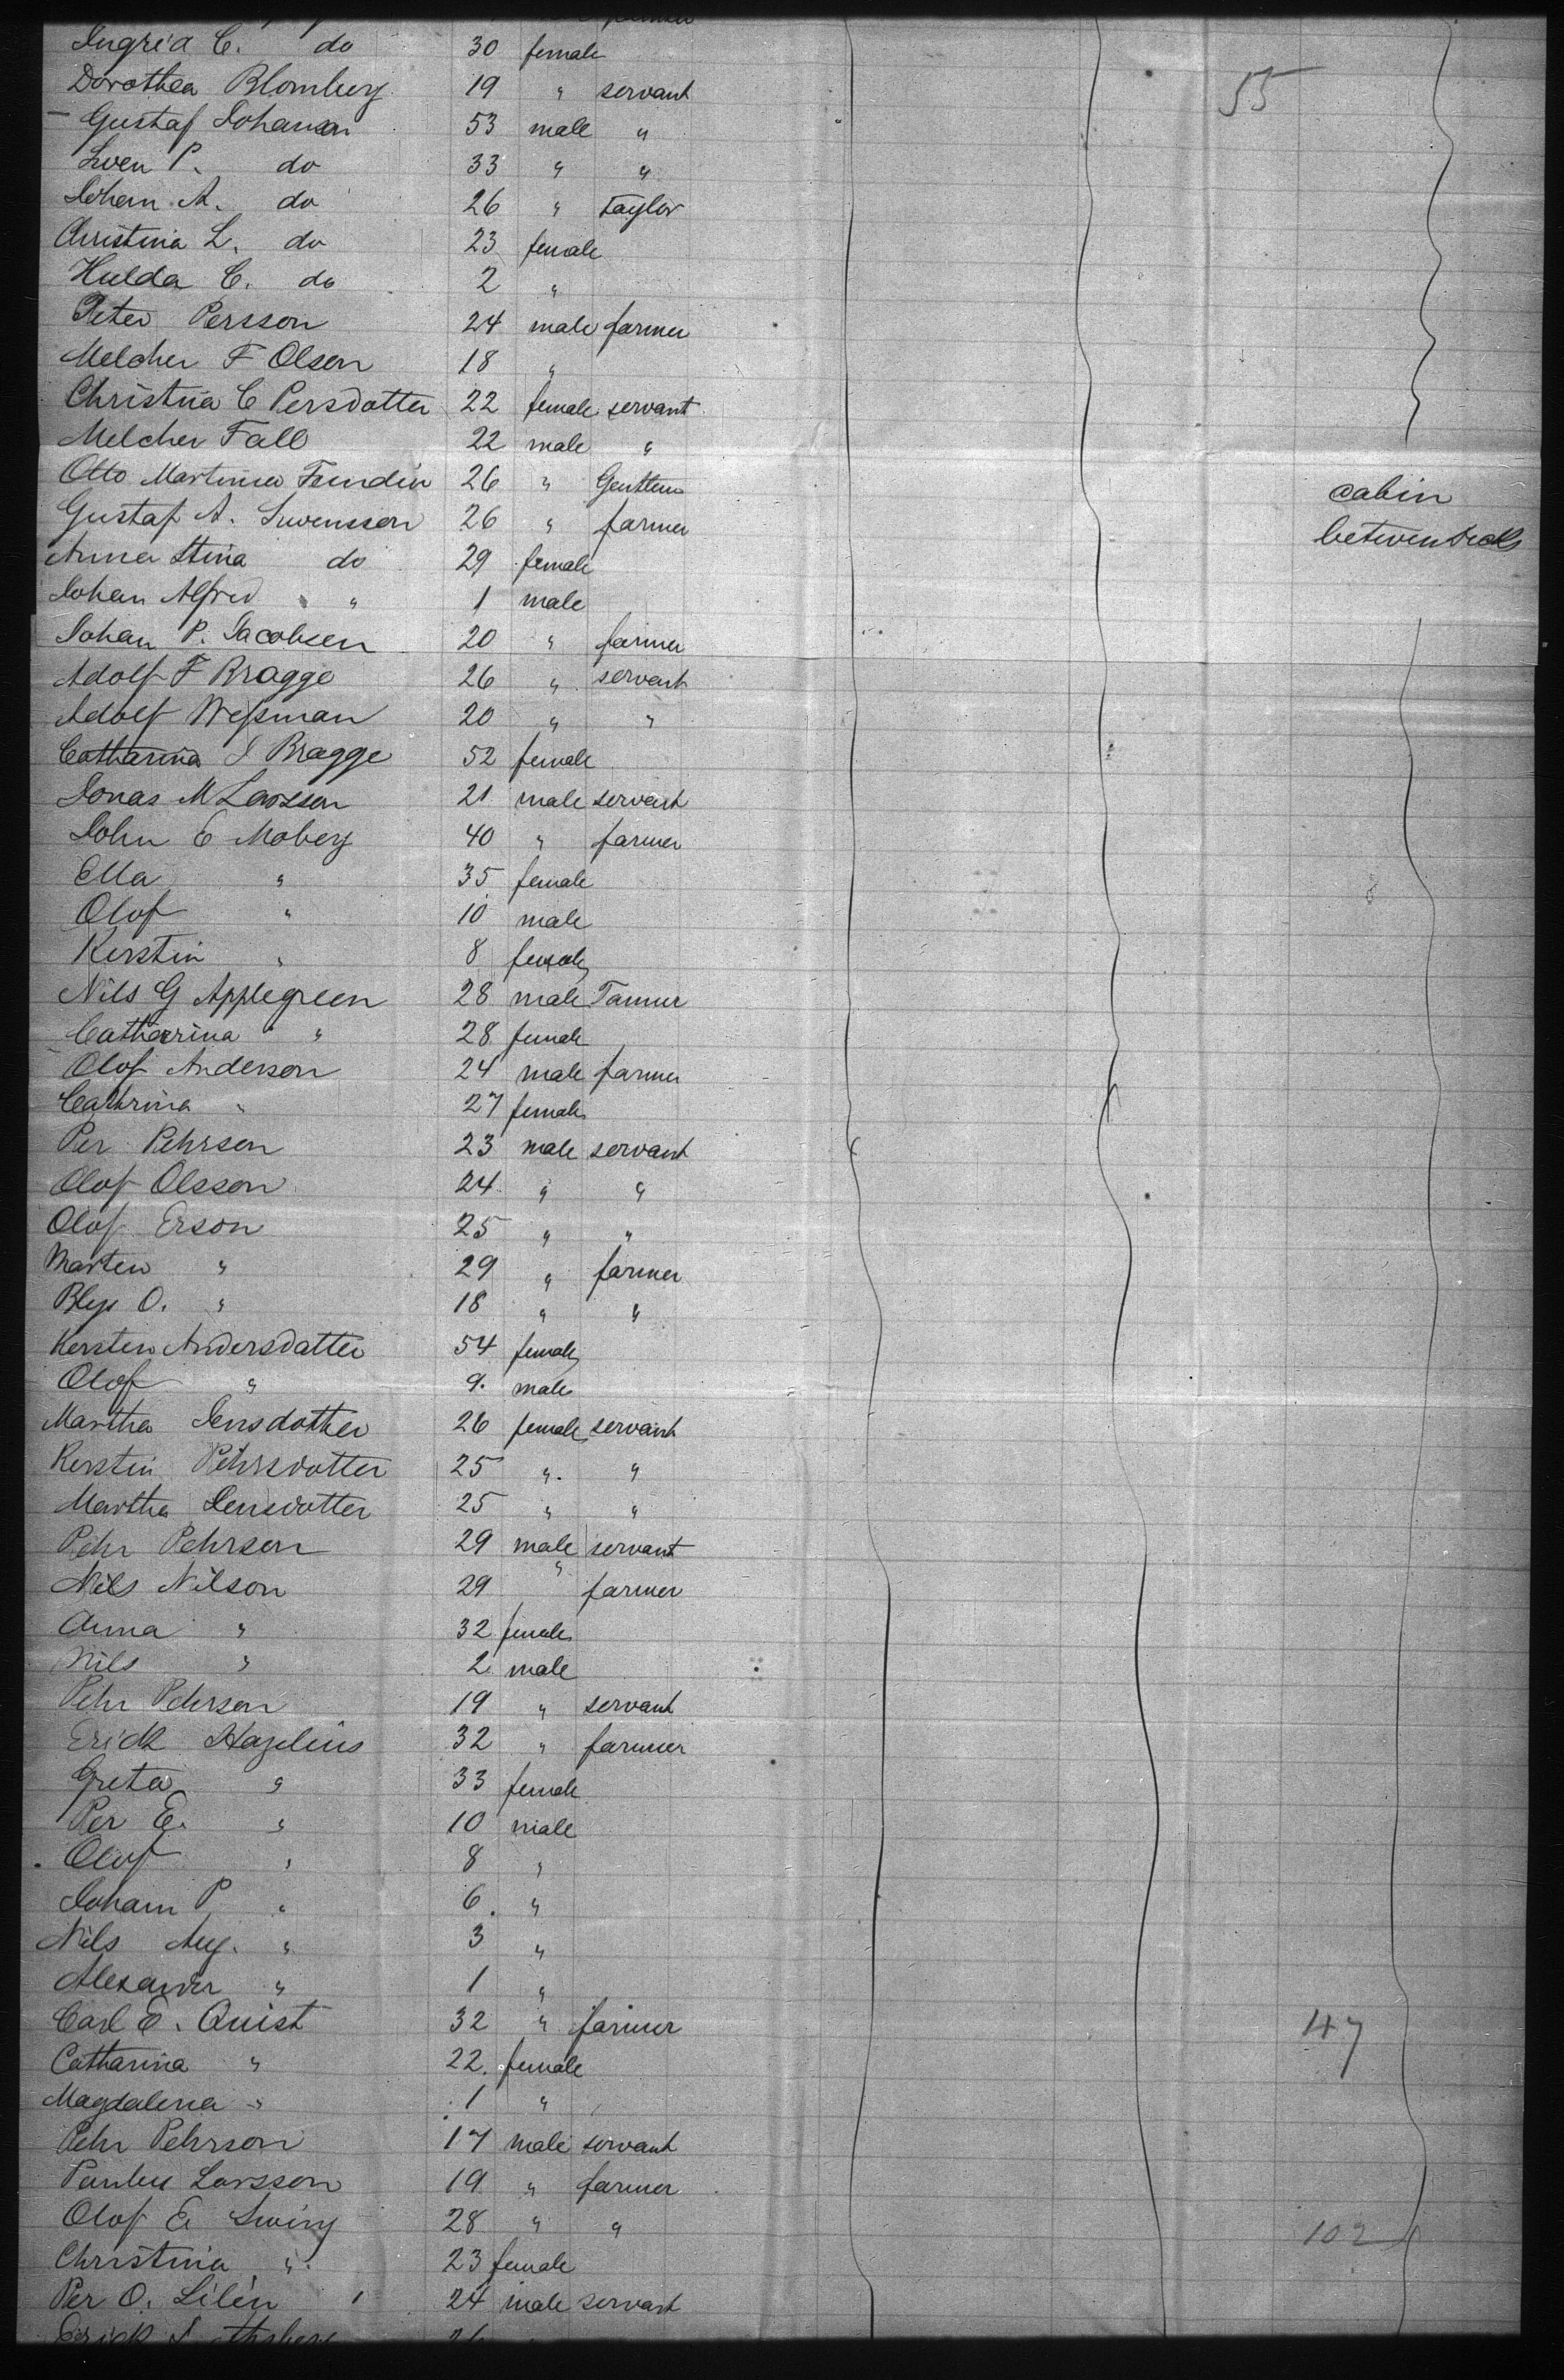 Ingrid C. do 30 female
Dorothea Blomberg 19 " servant 55
Gustaf Johanson 53 male "
Swen P. do 33 " "
Johan A. do 26 " Taylor
Christina L. do 23 female
Hulda C. do 2 "
Peter Persson 24 male farmer
Melcher F Olson 18 "
Christina C Persdotter 22 female servant
Melcher Fall 22 male "
Otto Martinus 26 " Gentlem cabin
Gustaf A. Swensson 26 " farmer betwendeck
Anna Stina do 29 female
Johan Alfred " 1 male
Johan P. Jacobsen 20 " farmer
Adolf F Bragge 26 " servant
Adolf Wessman 20 " "
Catharina J Bragge 52 female
Jonas M Larsson 21 male servant
John E Moberg 40 " farmer
Ella " 35 female
Olof " 10 male
Kerstin " 8 female
Nils G Applegreen 28 male Tanner
Catharina " 28 female
Olof Anderson 24 male farmer
Cathrina " 27 female
Per Pehrson 23 male servant
Olof Olsson 24 " "
Olof Erson 25 " "
Marten " 29 " farmer
O. " 18 " "
Kersten Andersdatter 54 female
Olof " 9. male
Martha Jensdotter 26 female servant
Kerstin Pehrsdotter 25 " "
Martha Jensdotter 25 " "
Pehr Pehrson 29 male servant
Nils Nilson 29 " farmer
Anna " 32 female
Nils " 2 male
Pehr Pehrson 19 " servant
Erick Hazelius 32 " farmer
Greta " 33 female
Per E. " 10 male
Olof " 8 "
Johan P " 6. "
Nils Aug. " 3 "
Alexander " 1 "
Carl E. Quist 32 " farmer 47
Catharina " 22. female
Magdalena " 1 "
Pehr Pehrson 17 male servant
Larsson 19 " farmer
Olof E Swing 28 " " 102
Christina " 23 female
Per O. Lilén 24 male servant
Erick